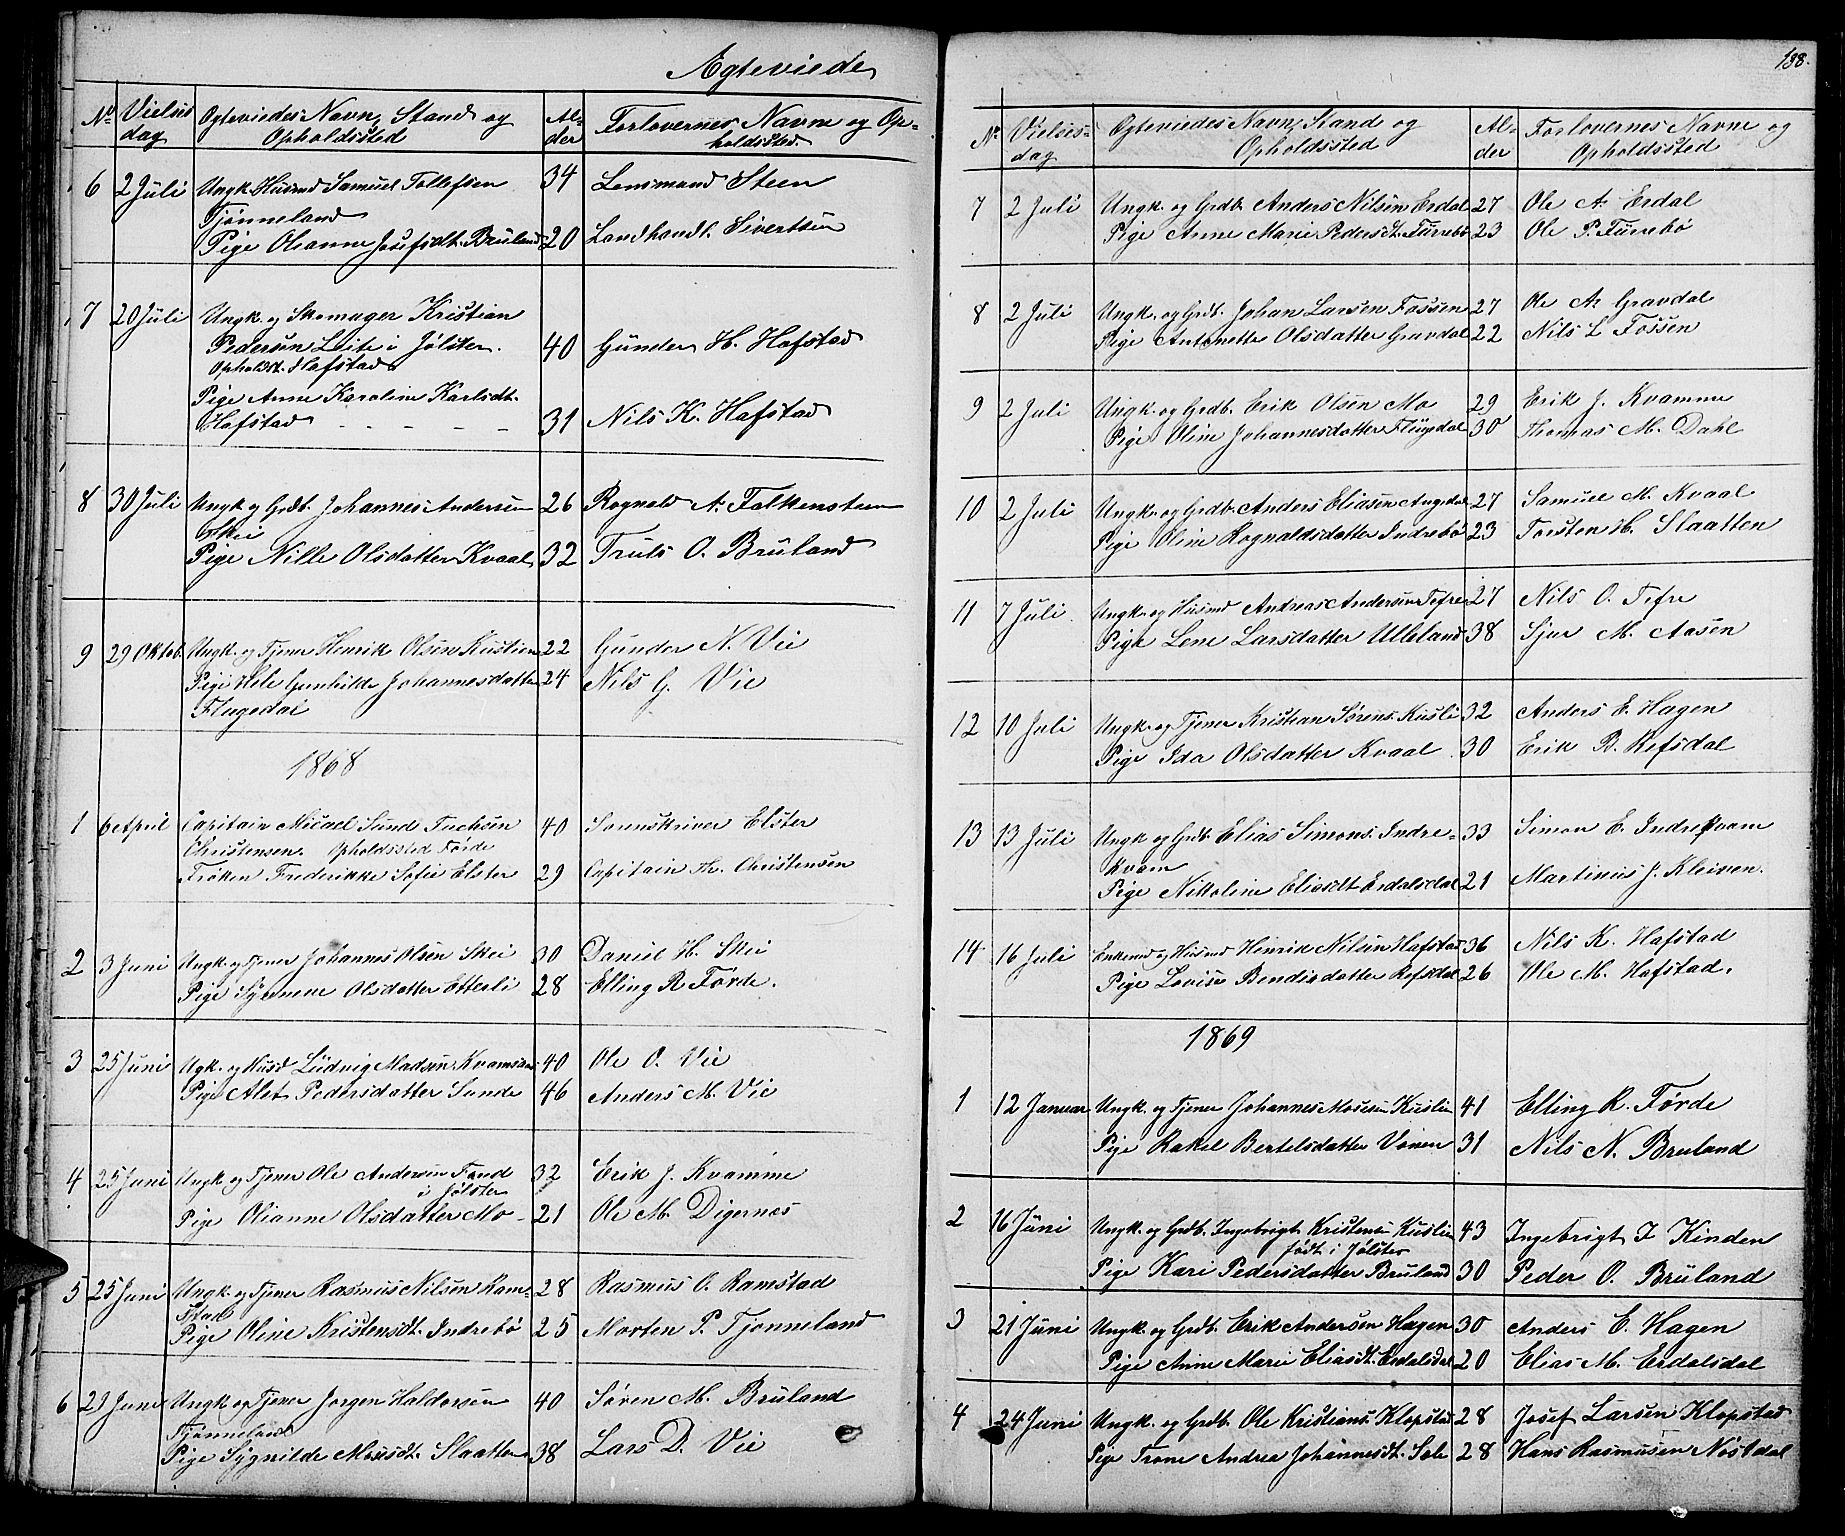 Ægteviede
No Vielses dag Egteviedes Navn, Stand og Opholdssted Al- der Forlovernes Navne og Op- holdssted
6 2 Juli Ungk. Husmd Samuel Tollefsen 34 Lensmand Steen
Tjønneland
Pige Olianne Josefsdt. Bruland 20 Landhandl. Sivertsen
7 20 Juli Ungk. og Skomager Kristian
Pedersen Leite i Jølster. 40 Gunder H. Hafstad
Opholdt. Hafstad
Pige Anne Karoline Karlsdt.
Hafstad - - - - - 31 Nils K. Hafstad
8 30 Juli Ungk. og Grdb. Johannes Andersen 26 Rognald A. Falkensteen
Skei
Pige Nille Olsdatter Kvaal 32 Truls O. Bruland
9 29 Oktob. Ungk. og Tjener Henrik Olsen Kuslien 22 Gunder N. Vie
Pige Gunhilde Johannesdatter 24 Nils G. Vie
Flugedal
1868
1 6 April Capitain Micael Sund Tuchsen 40 Sorenskriver Elster
Christensen. Opholdssted Førde
Frøken Frederikke Sofie Elster 29 Capitain Th. Christensen
2 3 Juni Ungk. og Tjener Johannes Olsen Skei 30 Daniel H. Skei
Pige Olsdatter Etterli 28 Elling R. Førde.
3 25 Juni Ugk. og Husd Ludvig Madsen 40 Ole O. Vie
Pige Alet Pedersdatter Sunde 46 Anders M. Vie
4 25 Juni Ungk. og Tjener Ole Andersen 32 Erik J. Kvamme
i Jølster
Pige Olianne Olsdatter Mo - 21 Ole M. Digernes
5 25 Juni Ungk. og Tjener Rasmus Nilsen Ram- 28 Rasmus O. Ramstad
stad
Pige Oline Kristensdt. Indrebø 25 Morten P. Tjønneland
6 29 Juni Ungk. og Tjener Jørgen Haldorsen 40 Søren M. Bruland
Tjønneland
Pige Sygnilde Slaatten 38 Lars D. Vie
138.
No Vielses- dag Egteviedes Navn, Stand og Opholdssted Al- der Forlovernes Navne og Opholdssted
7 2 Juli Ungk. og Grdb. Anders Nilsen Erdal 27 Ole A. Erdal
Pige Anne Marie Pedersdt. Furrebø 23 Ole P. Furrebø
8 2 Juli Ungk. og Grdb. Johan Larsen Fossen 27 Ole A. Gravdal
Pige Antonette Olsdatter Gravdal 22 Nils L. Fossen
9 2 Juli Ungk. og Grdb. Erik Olsen Mo 29 Erik J. Kvamme
Pige Oline Johannesdatter Flugedal 30 Thomas M. Dahl
10 2 Juli Ungk. og Grdb. Anders Eliasen Angedal 27 Samuel M. Kvaal
Pige Oline Rognaldsdatter Indrebø 23 Torsten H. Slaatten
11 7 Juli. Ungk. og Husmd Andreas Andersen Tefre 27 Nils O. Tefre
Pige Lene Larsdatter Ulleland 38 Sjur M. Aasen
12 10 Juli Ungk. og Tjener Kristian Sørens. Kusli 32 Anders E. Hagen
Pige Ida Olsdatter Kvaal 30 Erik B. Refsdal
13 13 Juli Ungk. og Grdb. Elias Simons. Indre- 33 Simon E. Indrekvam
kvam
Pige Nikoline Eliasdt. Erdalsdal 21 Martinus J. Kleiven.
14 16 Juli Enkemd og Husmd Henrik Nilsen Hafstad 36 Nils K. Hafstad
Pige Lovise Bendixdatter Refsdal 26 Ole M. Hafstad.
1869
1 12 Januar Ungk. og Tjener Johannes Mosesen Kuslien 41 Elling R. Førde
Pige Rakel Bertelsdatter Vonen 31 Nils N. Bruland
2 16 Juni Ungk. og Grdb. Ingebrigt Kristensen Kuslien 43 Ingebrigt I. Kinden
født i Jølster
Pige Kari Pedersdatter Bruland 30 Peder O. Bruland
3 21 Juni Ungk. og Grdb. Erik Andersen Hagen 30 Anders E. Hagen
Pige Anne Marie Eliasdt. Erdalsdal 20 Elias M. Erdalsdal
4 24 Juni Ungk. og Grdb. Ole Kristians. Klopstad 28 Josef Larsen Klopstad
Pige Trone Andrea Johannesdt. Sole 28 Hans Rasmusen Nøstdal